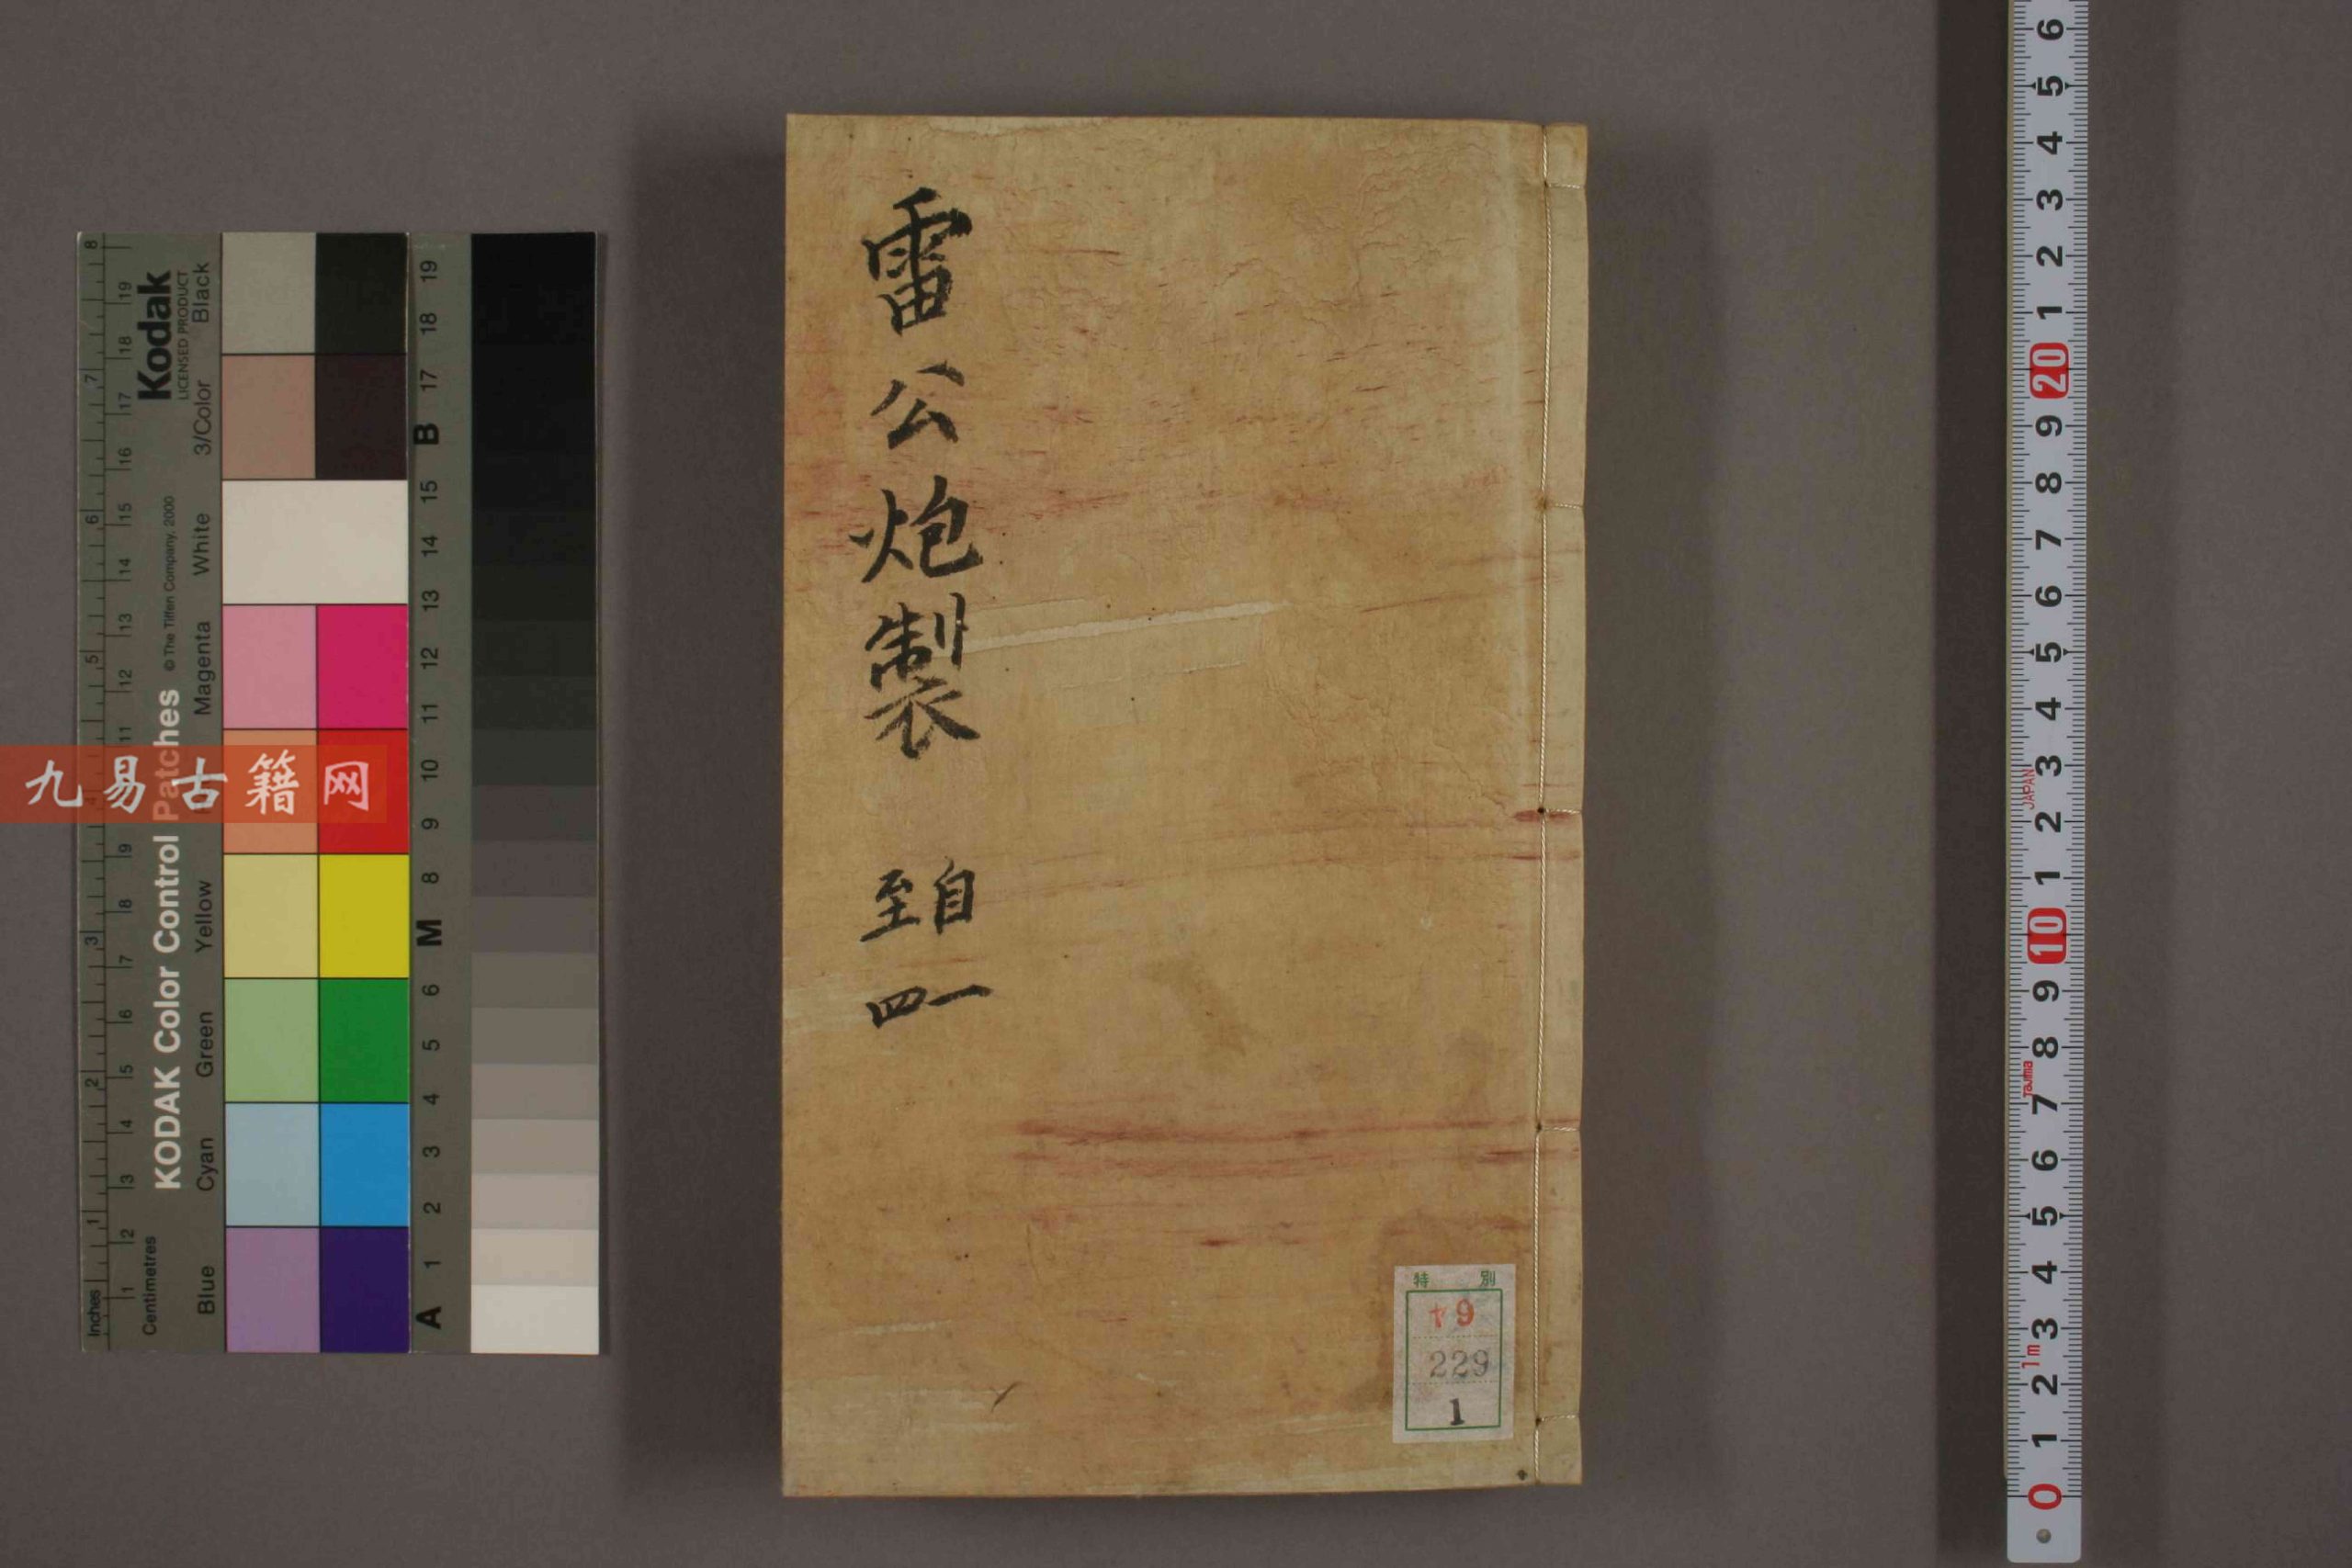 雷公炮製
自一
至四
特別
ヤ9
229
1
九易古籍网
Kodak
LICENSED PRODUCT
KODAK Color Control Patches
© The Tiffen Company, 2000
Inches
Centimetres
Blue
Cyan
Green
Yellow
Magenta
White
3/Color
Black
1 2 3 4 5 6 7 8
1 2 3 4 5 6 7 8 9 11 12 13 14 15 16 17 18 19
A 1 2 3 4 5 6 M 8 9 10 11 12 13 14 15 B 17 18 19
0 1 2 3 4 5 6 7 8 9 10 1 2 3 4 5 6 7 8 9 20 1 2 3 4 5 6
1m
Tajima
JAPAN